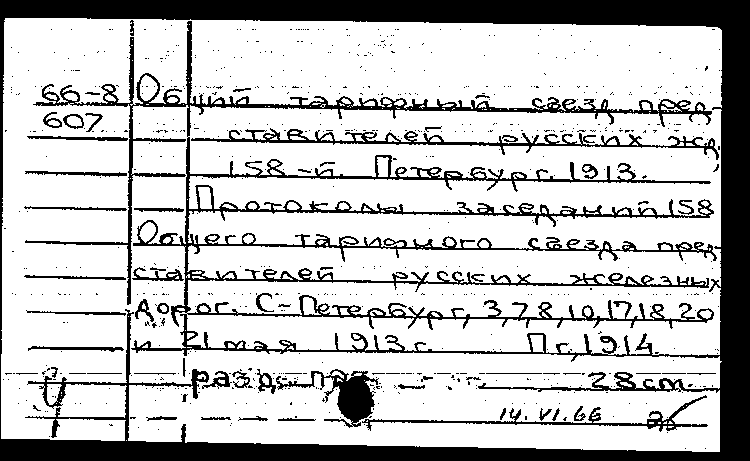 66-8 Общий тарифный съезд пред-
607 ставителей русских жд.
158-й. Петербург. 1913.
Протоколы заседаний 158
Общего тарифного съезда пред-
ставителей русских железных
дорог. С-Петербург, 3,7,8,10,17,18,20
и 21 мая 1913 г. Пг, 1914.
разд. паг. 28 cm.
14.VI.66